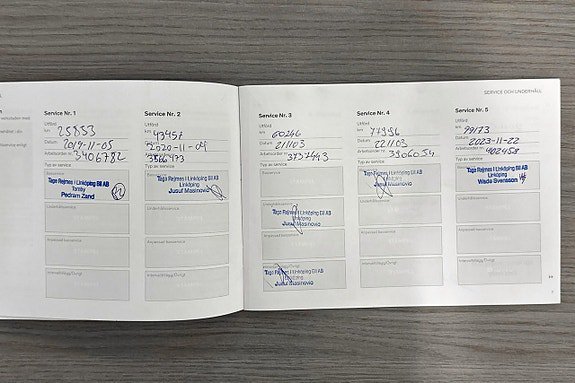 SERVICE OCH UNDERHÅLL
Service Nr. 1
Utförd
km 25853
Datum 2019-11-05
Arbetsorder nr. 3406782
Typ av service
Basservice
Tage Rejmes i Linköping Bil AB
Tornby
Pedram Zand
Underhållsservice
Anpassad basservice
Intervalltillägg/Övrigt
Service Nr. 2
Utförd
km 43457
Datum 2020-11-04
Arbetsorder nr.
Typ av service
Basservice
Tage Rejmes i Linköping Bil AB
Linköping
Jusuf Masinovic
Underhållsservice
Anpassad basservice
Intervalltillägg/Övrigt
Service Nr. 3
Utförd
km 60246
Datum 211103
Arbetsorder nr. 3732443
Typ av service
Basservice
Underhållsservice
Tage Rejmes i Linköping Bil AB
Linköping
Jusuf Masinovic
Anpassad basservice
Intervalltillägg/Övrigt
Tage Rejmes i Linköping Bil AB
Linköping
Jusuf Masinovic
Service Nr. 4
Utförd
km
Datum 221103
Arbetsorder nr. 3906054
Typ av service
Basservice
Tage Rejmes i Linköping Bil AB
Linköping
Jusuf Masinovic
Underhållsservice
Anpassad basservice
Intervalltillägg/Övrigt
Service Nr. 5
Utförd
km 99173
Datum 2023-11-22
Arbetsorder nr. 402458
Typ av service
Basservice
Tage Rejmes i Linköping Bil AB
Linköping
Wada Svensson
Underhållsservice
Anpassad basservice
Intervalltillägg/Övrigt
7